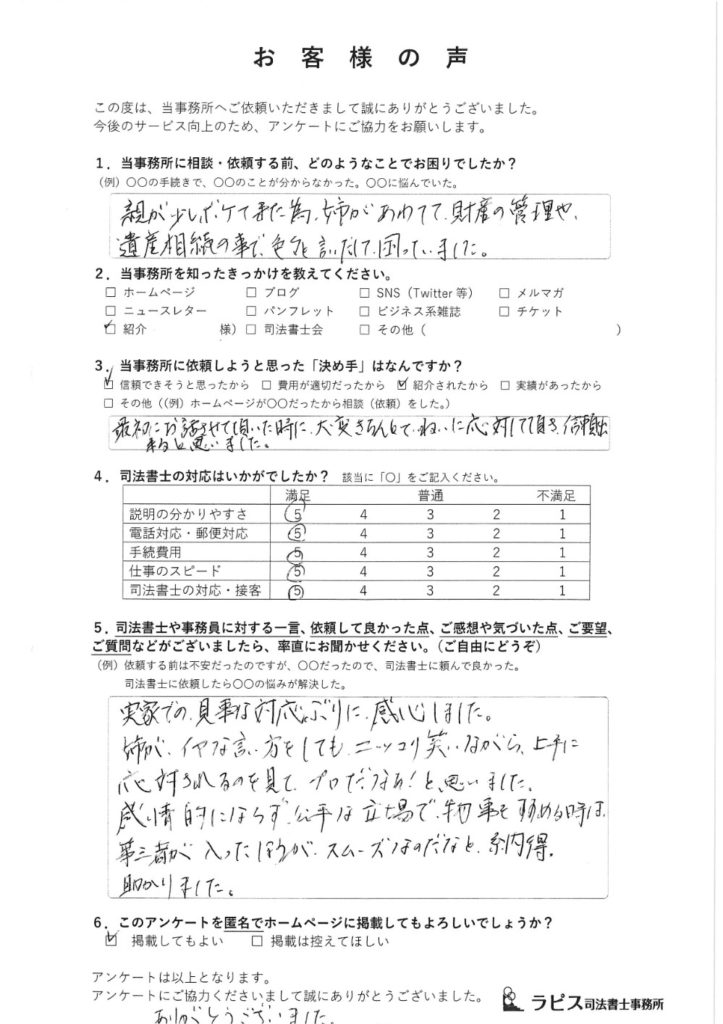 お客様の声
この度は、当事務所へご依頼いただきまして誠にありがとうございました。
今後のサービス向上のため、アンケートにご協力をお願いします。
1．当事務所に相談・依頼する前、どのようなことでお困りでしたか？
（例）〇〇の手続きで、〇〇のことが分からなかった。〇〇に悩んでいた。
親が少しボケてきた為、姉があわてて、財産の管理や、
遺産相続の事で、色々と言いだして、困っていました。
2．当事務所を知ったきっかけを教えてください。
□ ホームページ □ ブログ □ SNS（Twitter 等） □ メルマガ
□ ニュースレター □ パンフレット □ ビジネス系雑誌 □ チケット
☑ 紹介 様） □ 司法書士会 □ その他（ ）
3．当事務所に依頼しようと思った「決め手」はなんですか？
☑ 信頼できそうと思ったから □ 費用が適切だったから ☑ 紹介されたから □ 実績があったから
□ その他（（例）ホームページが〇〇だったから相談（依頼）をした。）
最初にお話させて頂いた時に、大変きちんとて、ねいに応対して頂き、信頼出
来ると思いました。
4．司法書士の対応はいかがでしたか？ 該当に「〇」をご記入ください。
満足 普通 不満足
説明の分かりやすさ 5 4 3 2 1
電話対応・郵便対応 5 4 3 2 1
手続費用 5 4 3 2 1
仕事のスピード 5 4 3 2 1
司法書士の対応・接客 5 4 3 2 1
5．司法書士や事務員に対する一言、依頼して良かった点、ご感想や気づいた点、ご要望、
ご質問などがございましたら、率直にお聞かせください。（ご自由にどうぞ）
（例）依頼する前は不安だったのですが、〇〇だったので、司法書士に頼んで良かった。
司法書士に依頼したら〇〇の悩みが解決した。
実家での、見事な対応ぶりに、感心しました。
姉が、イヤな言い方をしても、ニッコリ笑いながら、上手に
応対されるのを見て、プロだなぁ！と、思いました。
感情的にならず、公平な立場で、物事を進める時は、
第三者が入ったほうが、スムーズなのだなと、納得。
助かりました。
6．このアンケートを匿名でホームページに掲載してもよろしいでしょうか？
☑ 掲載してもよい □ 掲載は控えてほしい
アンケートは以上となります。
アンケートにご協力くださいまして誠にありがとうございました。
ラピス司法書士事務所
ありがとうございました。